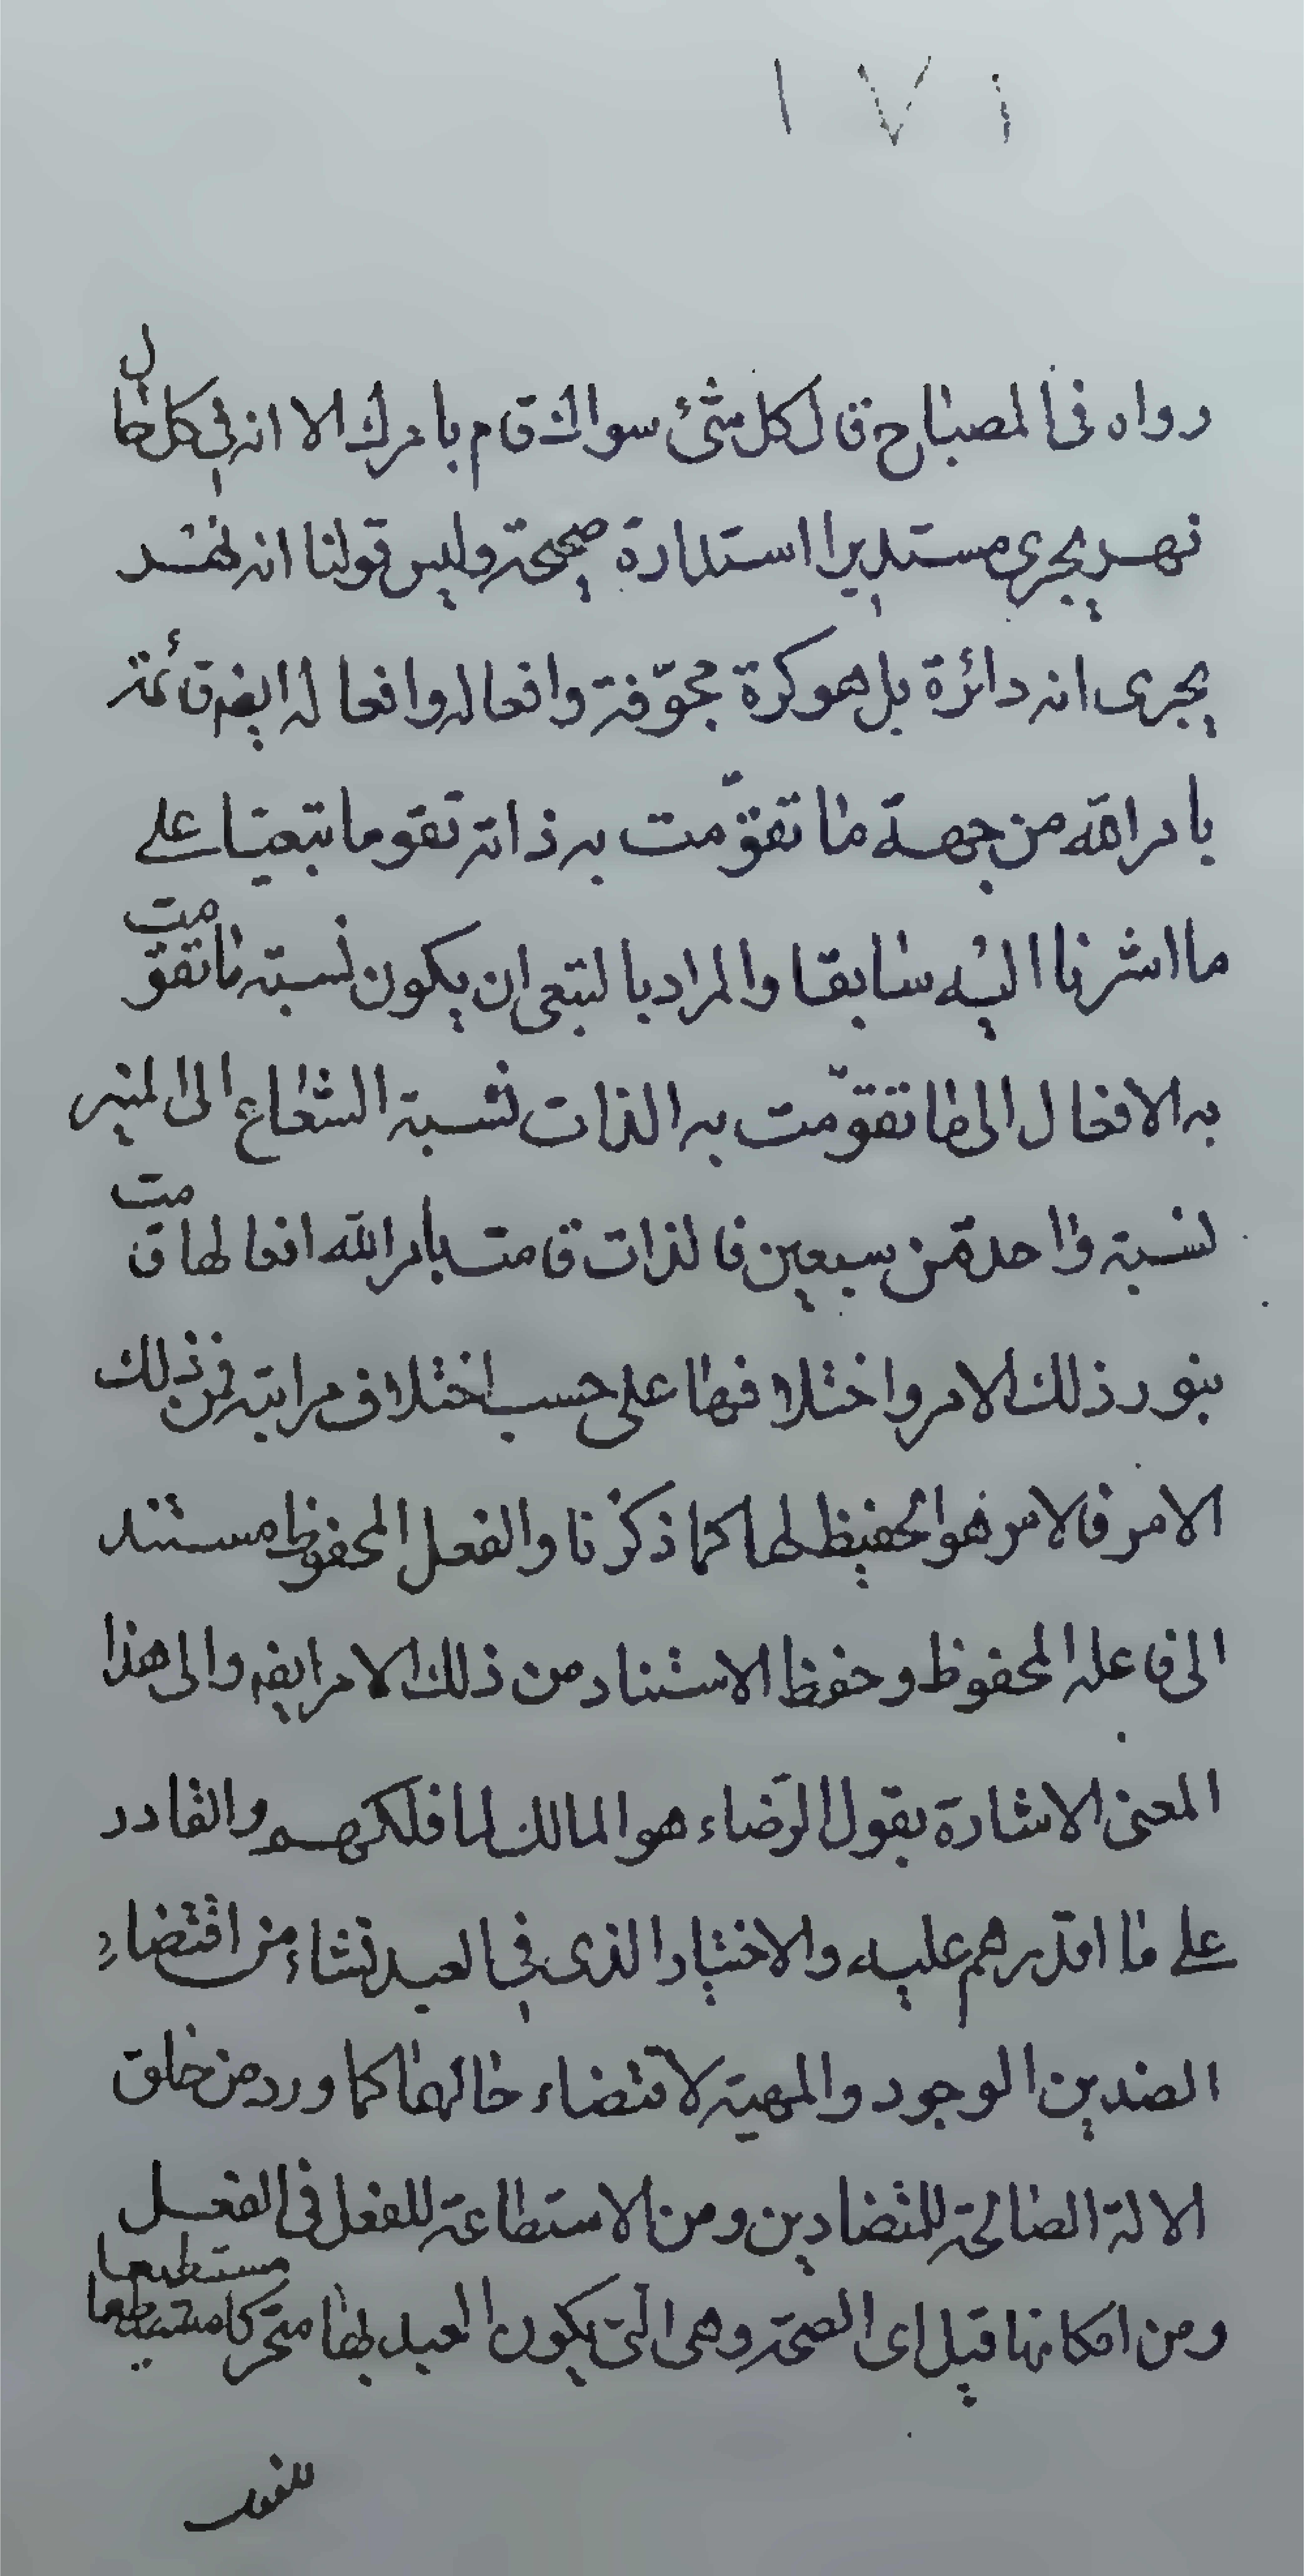 ١٧١
رواه فى المصباح قال كل شئ سواك قام بامرك الا انه فى كل حال
نهر يجرى مستديرا استدارة صحيحة وليس قولنا انه نهر
يجرى انه دائرة بل هو كرة مجوّفة وافعاله وافعاله ايضم قائمة
بامر الله من جهة ما تقوّمت به ذاته تقوما تبعيّا على
ما اشرنا اليه سابقا والمراد بالتبعى ان يكون نسبة ما تقومت
به الافعال الى ما تقوّمت به الذات نسبة الشعاع الى المنير
نسبة واحدة من سبعين فالذات قامت بامر الله افعالها قامت
بنور ذلك الامر واختلافها على حسب اختلاف مراتبه من ذلك
الامر فالامر هو الحفيظ لها كما ذكرنا والفعل المحفوظ مستند
الى فاعله المحفوظ وحفوظ الاستناد من ذلك الامر ايضم والى هذا
المعنى الاشارة بقول الرّضاء هو المالك لما ملكهم والقادر
على ما اقدرهم عليه والاختيار الذى فى العبد نشاء من اقتضاء
الضدين الوجود والمهية لاقتضاء حالهما كما ورد من خلق
الالة الصالحة للمتضادين ومن الاستطاعة للفعل فى الفعل
ومن امكانها قبل اى الصحة وهى التى يكون العبد بها متحركا مستطيعا
مستطيعا
للفعل